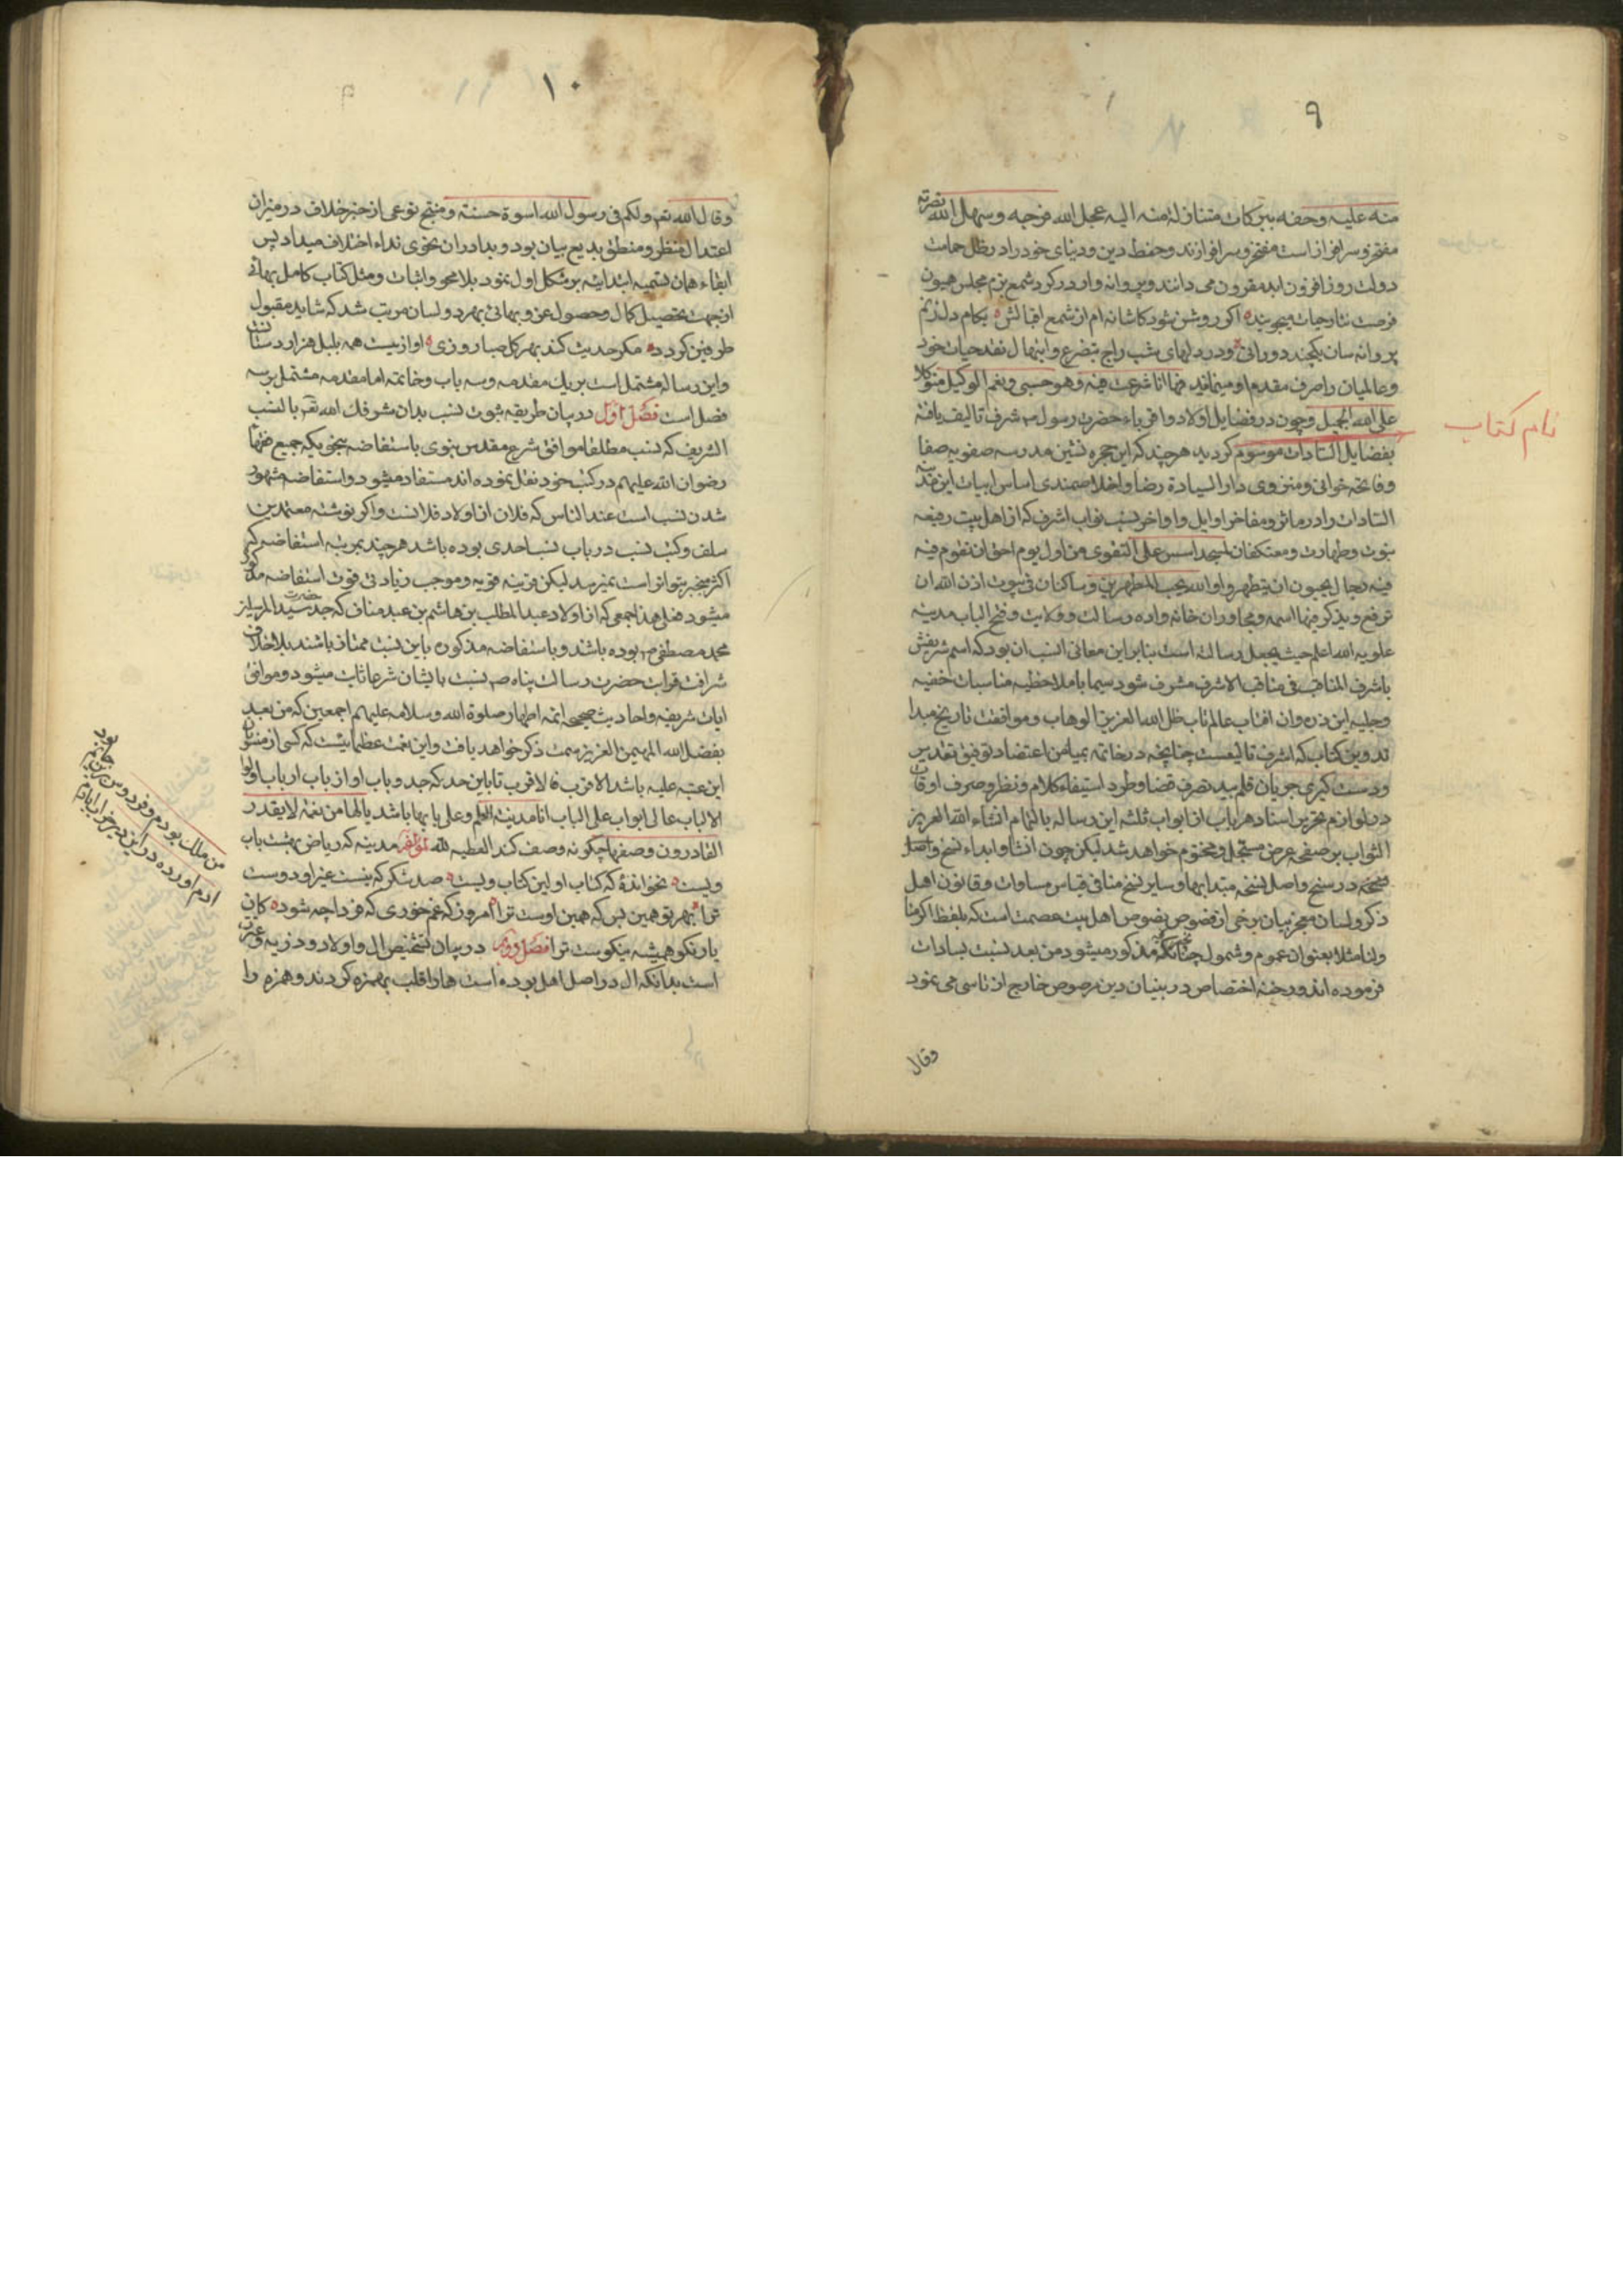 ۹
منه علیه وحفه ببرکات متنازلة منه الیه عجل الله فرجه وسهل الله نصرته
مفتخر وسرافراز است مفتخر وسرافرازند وحفظ دین ودنیای خود را در ظل حمایت
دولت روز افزون ابد مقرون می دانند وپروانه وار در کرد شمع بزم مجلس همیون
فرصت نثار حیات میجویند اکر روشن شود کاشانه ام از شمع اقبالش بکام دل زنم
پروانه سان یکچند دورانی ودر دلهای شب راج بتضرع وابتهال نقد حیات خود
وعالمیان را صرف مقدم او مینماید فها انا شرعت فیه وهو حسبی ونعم الوکیل متوکلا
علی الله الجمیل وچون در فضایل اولاد واقرباء حضرت رسول ص شرف تالیف یافته
نام کتاب
بفضایل السادات موسوم کردید هرچند که این حجره نشین مدرسه صفویه صفا
وفاتحه خوانی ومنزوی دار السیادة رضا واخلاصمندی اساس ابیات این
السادات را در ماثر ومفاخر اوایل واواخر نسب نواب اشرف که از اهل بیت رفیعه
نبوت وطهارت ومعتکفان لمسجد اسس علی التقوی من اول یوم احق ان تقوم فیه
فیه رجال یحبون ان یتطهروا والله یحب المطهرین وساکنان فی بیوت اذن الله ان
ترفع ویذکر فیها اسمه ومجاوران خانه واده رسالت وولایت وفتح الباب مدینه
علویه الله اعلم حیث یجعل رسالته است بنابر این معانی انسب ان بود که اسم شریفش
باشرف المناقب فی مناقب الاشرف مشرف شود سیما با ملاحظه مناسبات خفیه
وجلیه این ذره وان افتاب عالم تاب ظل الله العزیز الوهاب وموافقت تاریخ مبدا
تدوین کتاب که اشرف تالیفست چنانچه در خاتمه بمیامن اعتضاد توفیق تقدیر
ودست کیری جریان قلم بید تصرف قضا وطود استیفاء کلام ونظر وصرف اوقات
در لوازم تحریر اسناد هر باب از ابواب ثلثه این رساله بالتمام انشاء الله العزیز
الثواب بر صفحه عرض مستجل ومختوم خواهد شد لیکن چون انشا وابداء نسخ واصل
نسخه در نسخ واصل نسخه مبتدابها وسایر نسخ منافی قیاس مساوات وقانون اهل
ذکر ولسان معجز بیان برخی از فصوص نصوص اهل بیت عصمت است که بلفظ اکرموا
ولنا مثلا بعنوان عموم وشمول چنانکه مذکور میشود من بعد نسبت بسادات
فرموده اند ورخنه اختصاص در بنیان دین مرصوص خارج از ناسی می نمود
وقال
۱۰
وقال الله تعم ولکم فی رسول الله اسوة حسنة ومنتج نوعی از خبر خلاف در میزان
اعتدال منظر ومنطق بدیع بیان بود وبمادران نحوی نداء اختلاف میداد پس
ابقاء همان تسمیه ابتدائیه بر شکل اول نمود بلا محو واثبات ومثل کتاب کامل بهائی
از جهت تحصیل کمال وحصول عز وبهائی بهر دو لسان مرتب شد که شاید مقبول
طرفین کردد مکر حدیث کند بهر کل صبا روزی اواز بیست همه بلبل هزار دستانت
واین رساله مشتمل است بر یك مقدمه وسه باب وخاتمه اما مقدمه مشتمل بر سه
فصل است فصل اول در بیان طریقه ثبوت نسب بدان شرفك الله تعم بالنسب
الشریف که نسب مطلقا موافق شرع مقدس نبوی باستفاضه بنحوی که جمیع فقها
رضوان الله علیهم در کتب خود نقل نموده اند مستفاد میشود واستفاضه مشهور
شدن نسب است عند الناس که فلان از اولاد فلانست واکر نوشته معتمدین
سلف وکتب نسب در باب نسب احدی بوده باشد هرچند بمرتبه استفاضه که
اکثر منجر بتواتر است نمیرسد لیکن قرینه قویه وموجب زیادتی قوت استفاضه مذکور
میشود فعلی هذا جمعی که از اولاد عبد المطلب بن هاشم بن عبد مناف که جد حضرت سید المرسلین
محمد مصطفی ص بوده باشند وباستفاضه مذکوره باین نسبت ممتاز باشند بلا خلاف
شرافت قرابت حضرت رسالت پناه ص نسبت بایشان شرعا ثابت میشود وموافق
ایات شریفه واحادیث صحیحه ائمه اطهار صلوة الله وسلامه علیهم اجمعین که من بعد
بفضل الله المهیمن العزیز سمت ذکر خواهد یافت واین نعمت عظمائیست که کسی از منتسبان
این عتبه علیه باشد الاقرب فالاقرب تا باین حد که جد وباب او از باب ارباب اولوا
الالباب عالی ابواب علی الباب انا مدینة العلم وعلی بابها باشد یالها من نعمة لایقدر
القادرون وصفها چکونه وصف کند العطیه لله لمؤلفه مدینه که ریاض بهشت باب
ویست نخوانده که کتاب اولین کتاب ویست صد شکر که نیست غیر او دوست
ترا بهر تو همین بس که همین اوست ترا امروز که غم خوری که فردا چه شود کان
یار نکو همیشه نیکوست ترا فصل دویم در بیان تشخیص ال واولاد وذریه وعترت
است بدانکه ال در اصل اهل بوده است ها را قلب بهمزه کردند وهمزه را
من ملك بودم وفردوس برین جایم بود
ادم اورد در این دیر خراب ابادم